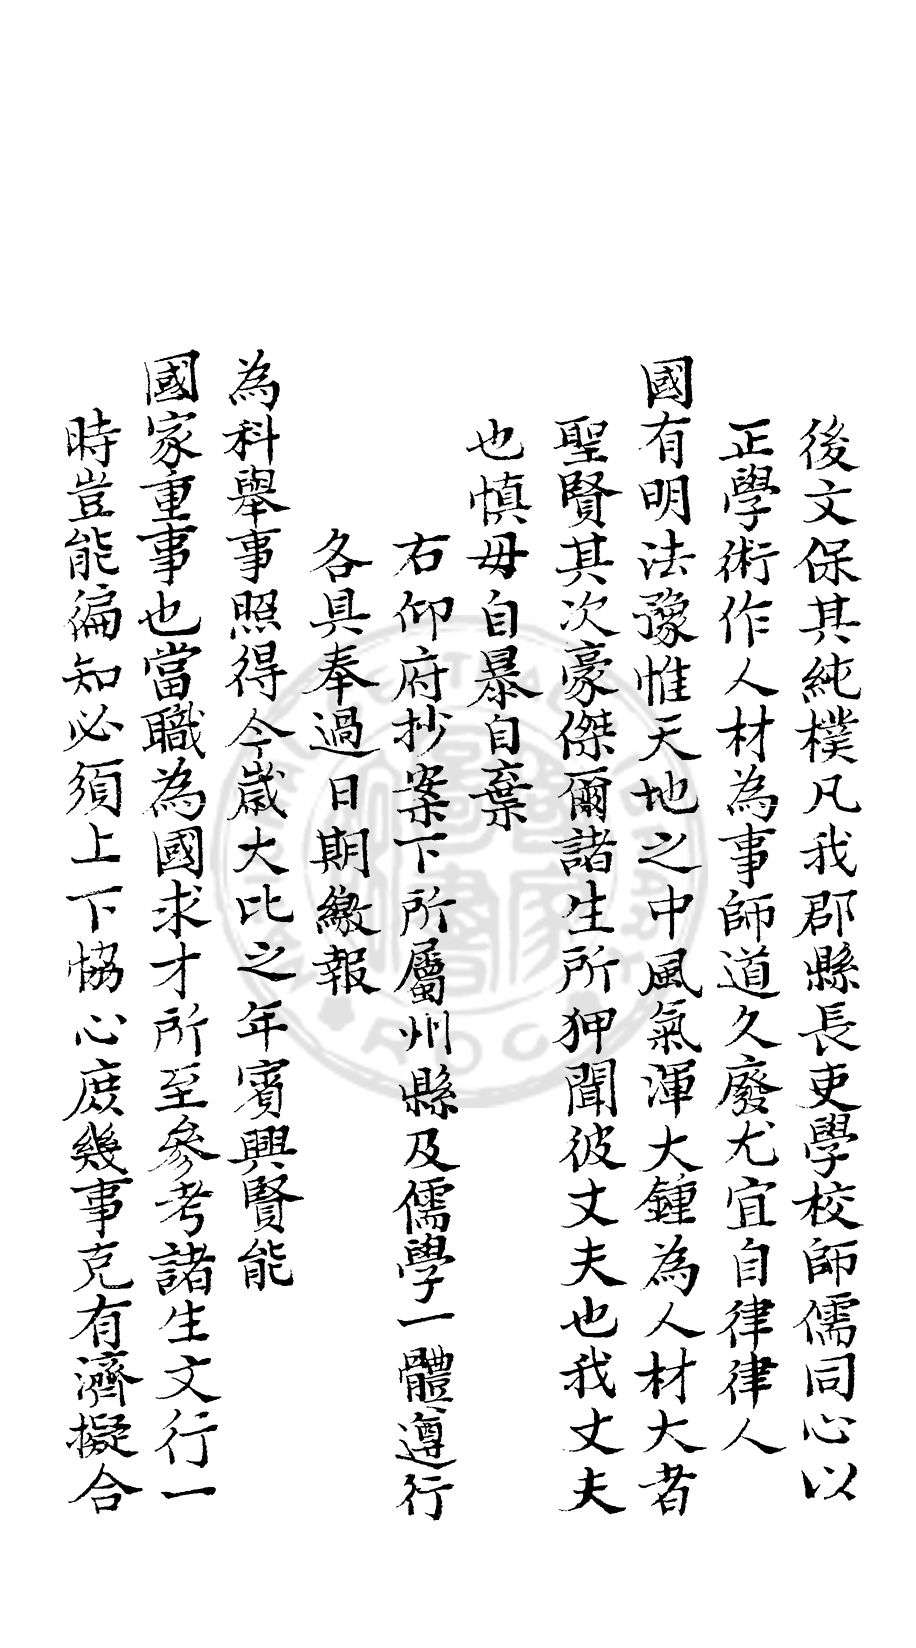 後文保其純樸凡我郡縣長吏學校師儒同心以
正學術作人材為事師道久廢尤宜自律律人
國有明法豫惟天地之中風氣渾大鍾為人材大者
聖賢其次豪傑爾諸生所狎聞彼丈夫也我丈夫
也慎毋自暴自棄
右仰府抄案下所屬州縣及儒學一體遵行
各具奉過日期繳報
為科舉事照得今歲大比之年賓興賢能
國家重事也當職為國求才所至參考諸生文行一
時豈能徧知必須上下恊心庶幾事克有濟擬合